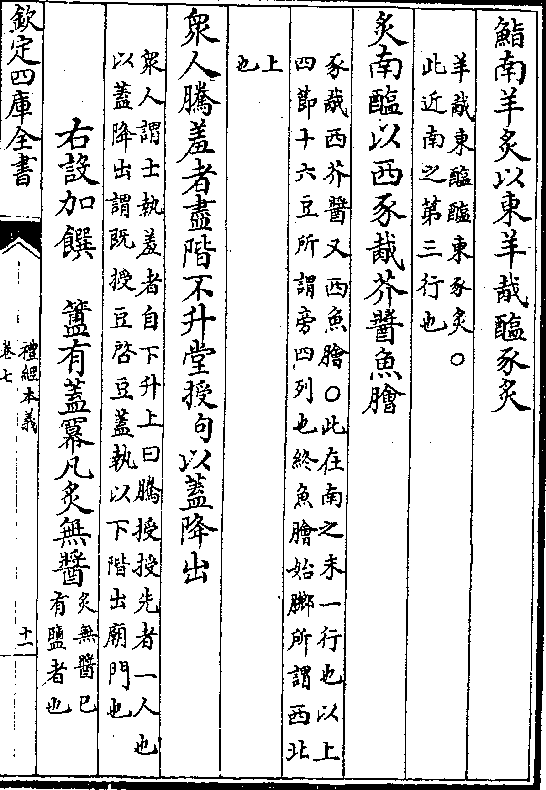 鮨南羊炙以東羊胾醢豕炙
羊胾東醢醢東豕炙○
此近南之第三行也
炙南醢以西豕胾芥醬魚膾
豕胾西芥醬又西魚膾○此在南之末一行也以上
四節十六豆所謂旁四列也終魚膾始膷所謂西北
上
也
衆人騰羞者盡階不升堂授句以蓋降出
衆人謂士執羞者自下升上曰騰授授先者一人也
以蓋降出謂既授豆啓豆蓋執以下階出廟門也
右設加饌　簠有蓋冪凡炙無醬
炙無醬巳
有鹽者也
欽定四庫全書
禮經本義
卷七
十一